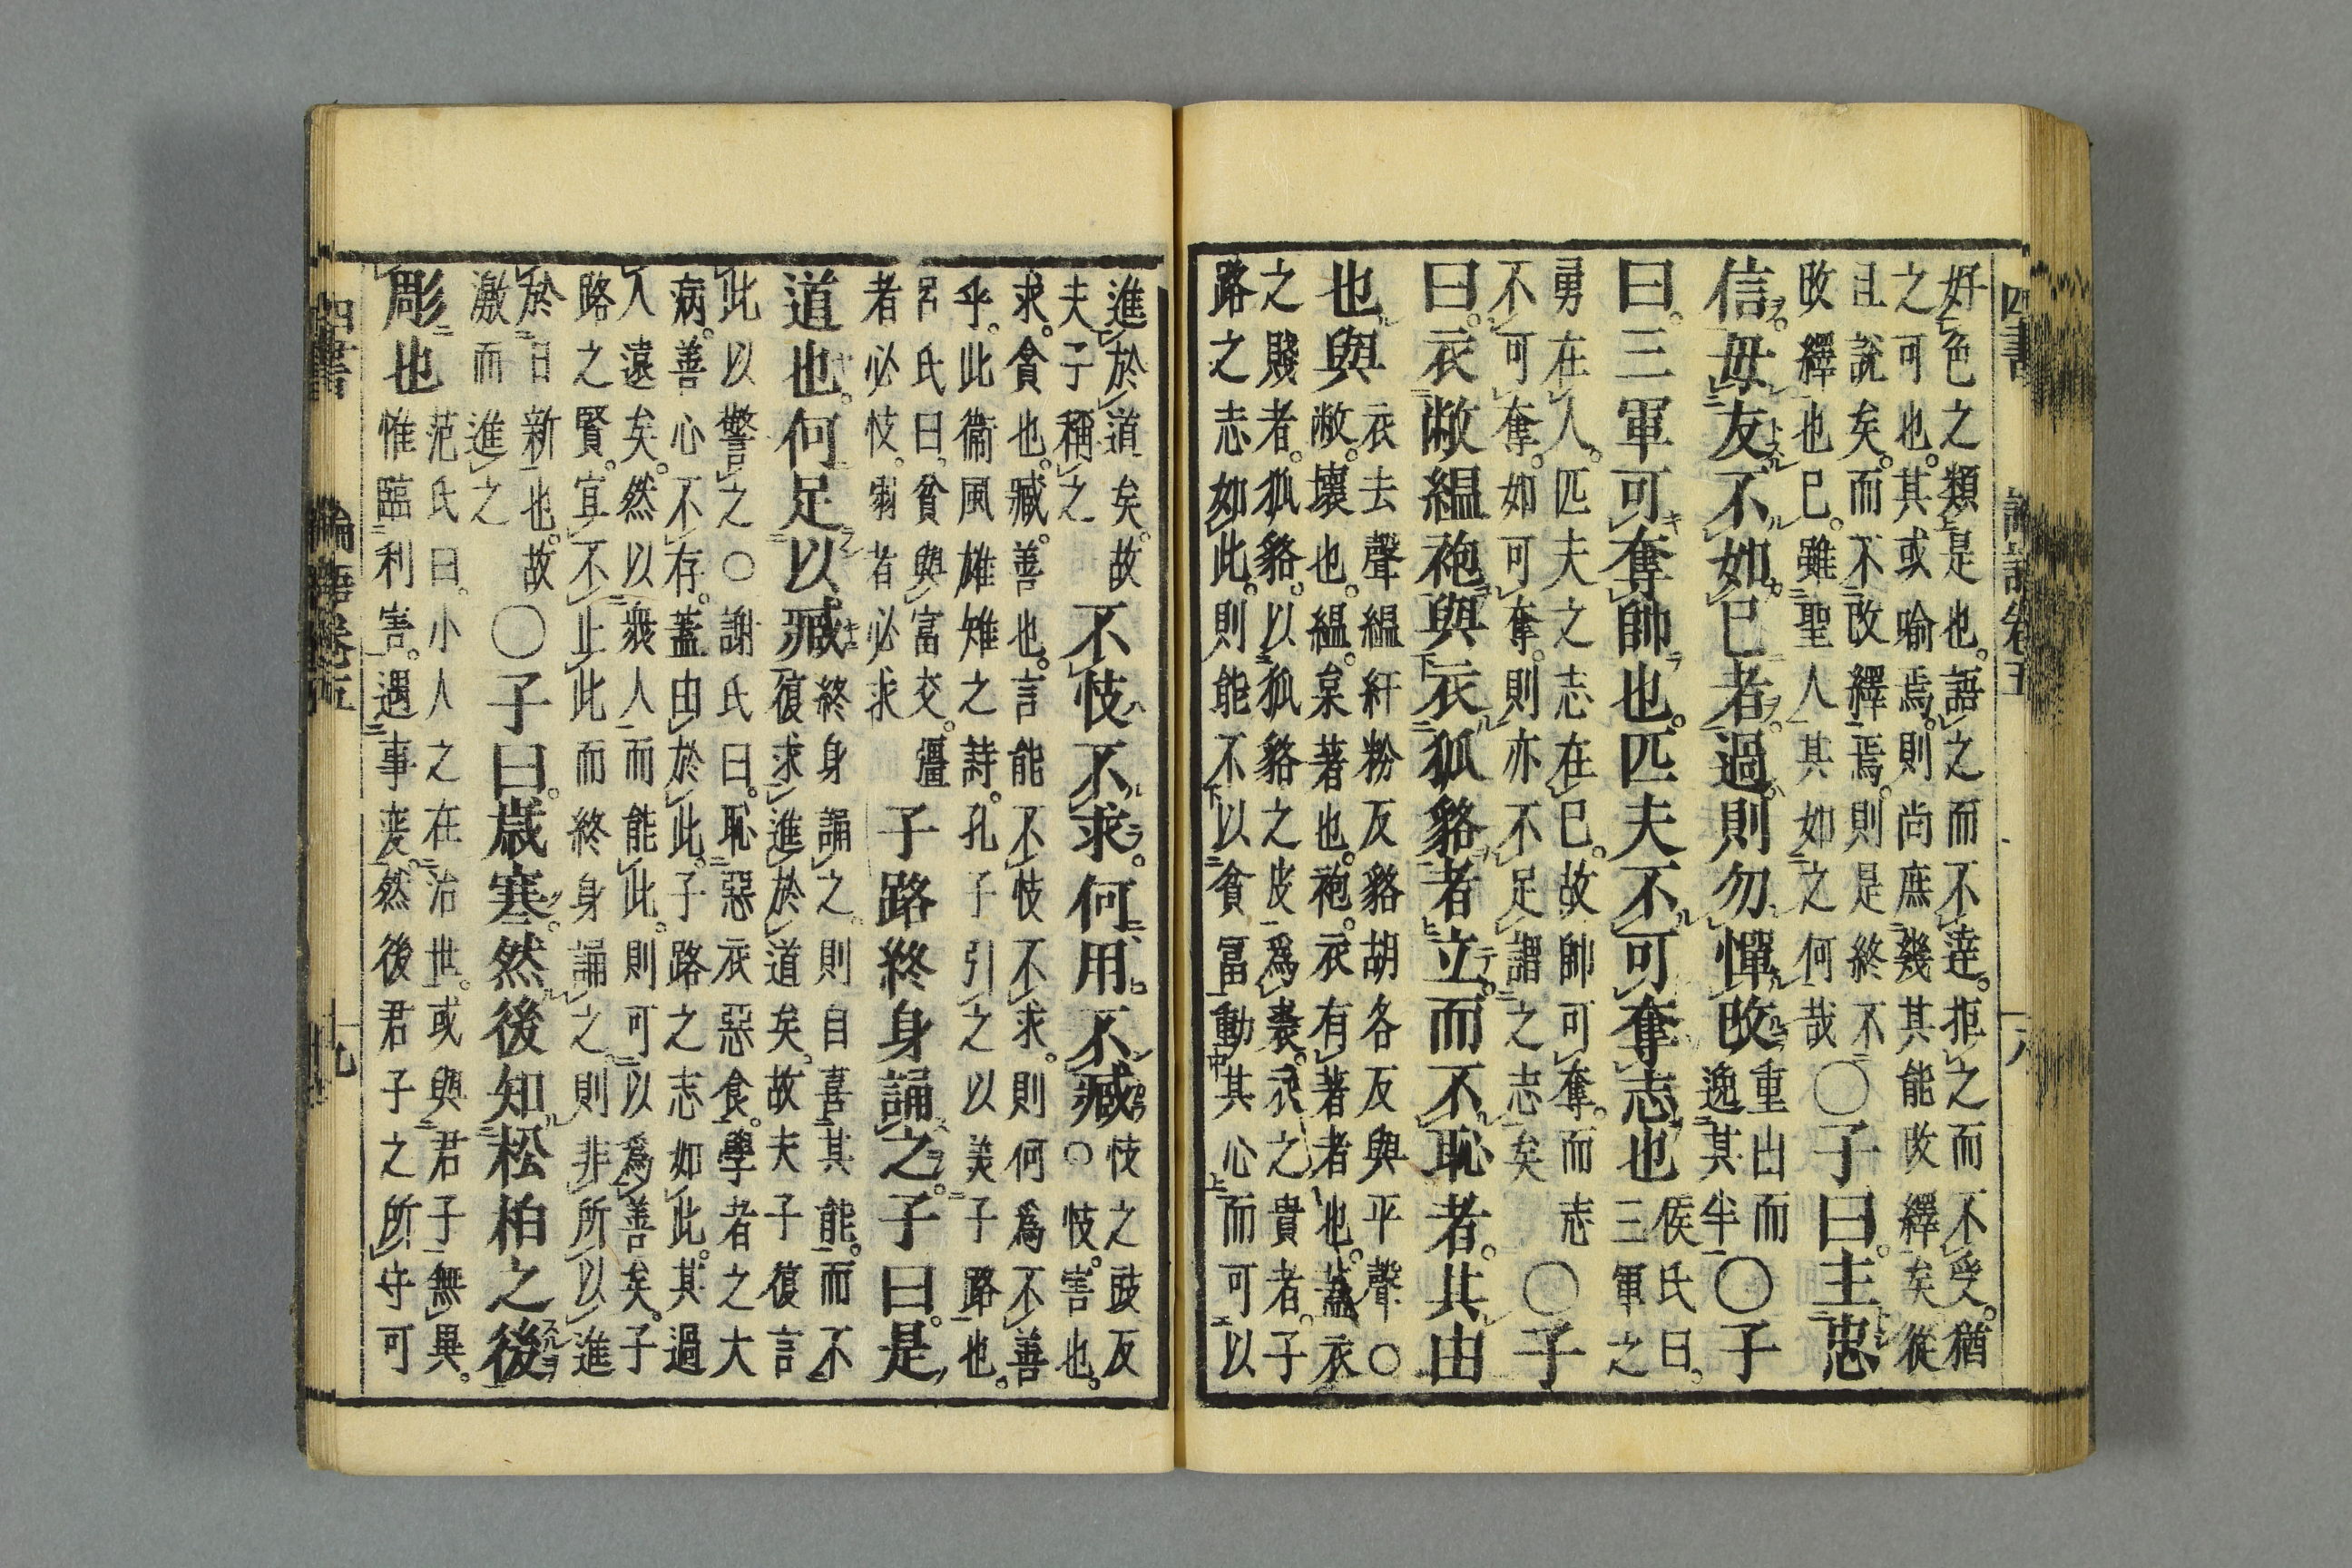 四書 論語卷五
好色之類是也。語之而不達。拒之而不受。猶
之可也。其或喻焉。則尚庶幾其能改繹矣從
且說矣。而不改繹焉。則是終不
改繹也已。雖聖人其如之何哉
〇子曰。主忠
信。毋友不如已者。過則勿憚改
重出而
逸其半
〇子
曰。三軍可奪帥也。匹夫不可奪志也
侯氏曰。
三軍之
勇在人。匹夫之志在已。故帥可奪。而志
不可奪。如可奪。則亦不足謂之志矣
〇子
曰。衣敝縕袍與衣狐貉者立。而不恥者。其由
也與
衣去聲縕紆粉反貉胡各反與平聲〇
敝。壞也。縕。枲著也。袍。衣有著者也。蓋衣
之賤者。狐貉。以狐貉之皮爲裘。衣之貴者。子
路之志如此。則能不以貧富動其心而可以
進於道矣。故
夫子稱之
不忮不求。何用不臧
忮之豉反
〇忮。害也。
求。貪也。臧。善也。言能不忮不求。則何爲不善
乎。此衞風雄雉之詩。孔子引之以美子路也。
呂氏曰。貧與富交。彊
者必忮。弱者必求
子路終身誦之。子曰。是
道也。何足以臧
終身誦之。則自喜其能。而不
復求進於道矣。故夫子復言
此以警之〇謝氏曰。恥惡衣惡食。學者之大
病。善心不存。蓋由於此。子路之志如此。其過
人遠矣。然以衆人而能此。則可以爲善矣。子
路之賢。宜不止此而終身誦之。則非所以進
於日新也。故
激而進之
〇子曰。歲寒。然後知松柏之後
彫也
范氏曰。小人之在治世。或與君子無異。
惟臨利害。遇事變。然後君子之所守可
四書 論語卷五 十九